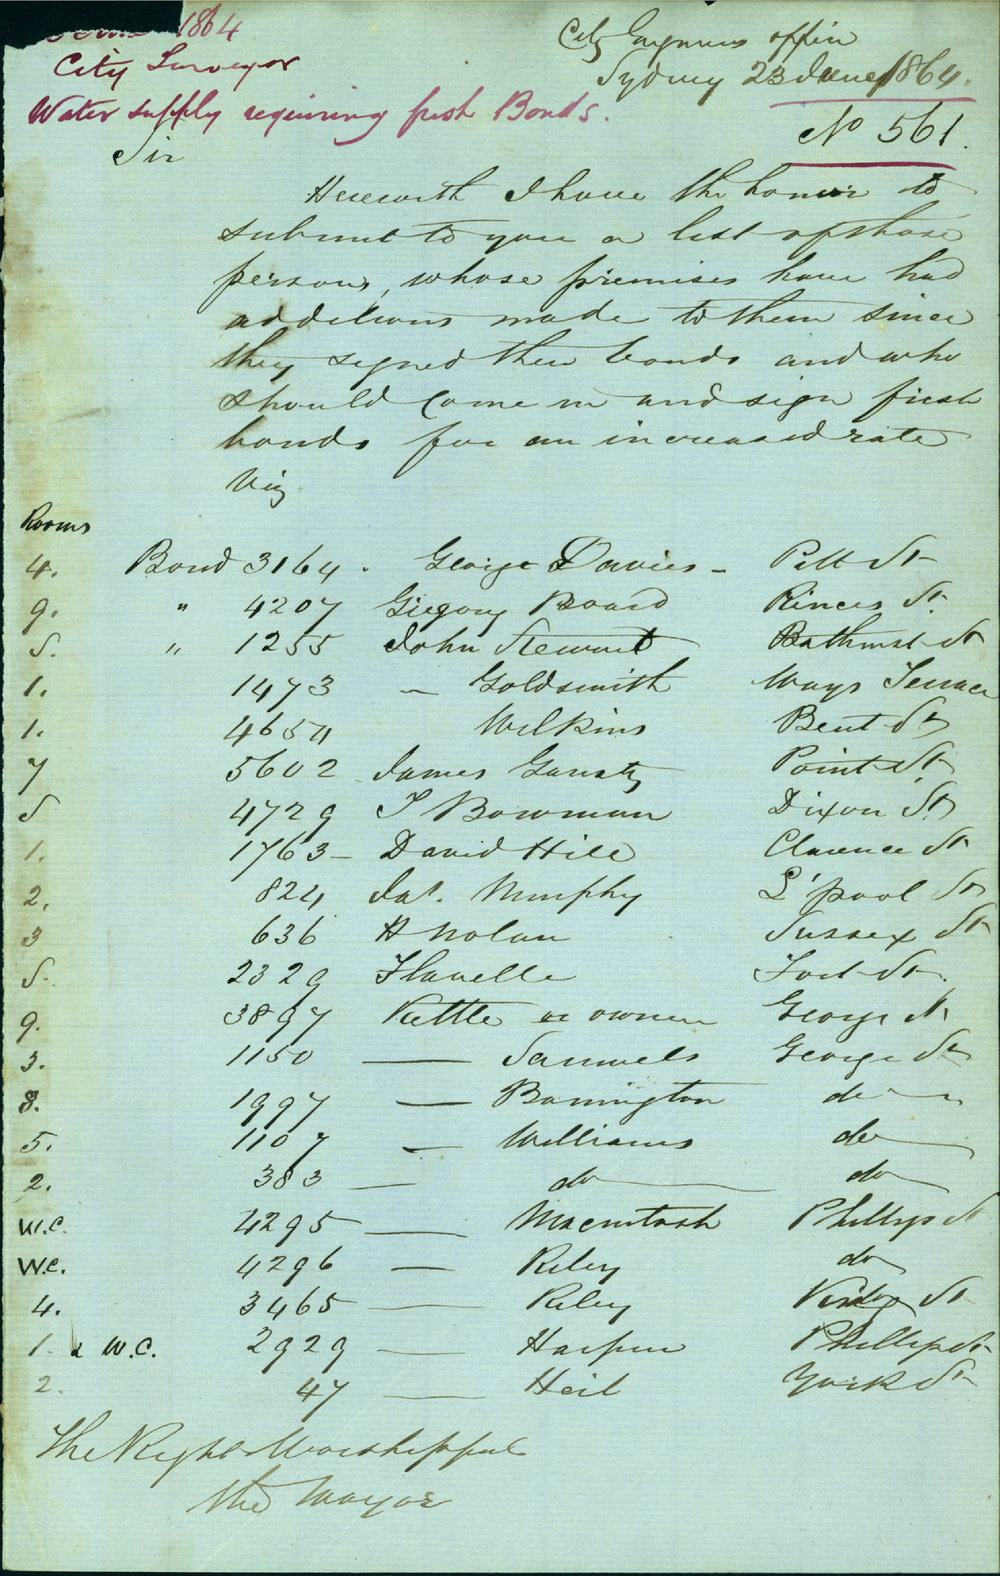 1864
City Surveyor
Water supply requiring fresh Bonds.
City Engineers office
Sydney 23 June 1864.
No 561.
Sir
Herewith I have the honor to
submit to you a list of those
persons, whose premises have had
additions made to them since
they signed their bonds and who
should come in and sign fresh
bonds for an increased rate
Viz
Rooms
4. Bond 3164. George Davies - Pitt St
9. " 4207 Gregory Board Princes St.
5. " 1255 John Stewart Bathurst St
1. 1473 — Goldsmith Ways Terrace
1. 4654 Wilkins Bent St
7 5602 James Point St
5 4729 T Bowman Dixon St
1. 1763 - David Hill Clarence St
2. 824 Jas. Murphy L'pool St
3 636 H Nolan Sussex St
5. 2329 Flavelle Fort St.
9. 3897 Kettle or owner George St
3. 1150 — Samuels George St
8. 1997 — Bonnington do
5. 1107 — Williams do
2. 383 — do do
W.C. 4295 — Macintosh Phillip St
W.C. 4296 — Riley do
4. 3465 — Riley St
1. & W.C. 2929 — Harper Phillip St
2. 47 — Heil York St
The Right Worshipful
the Mayor